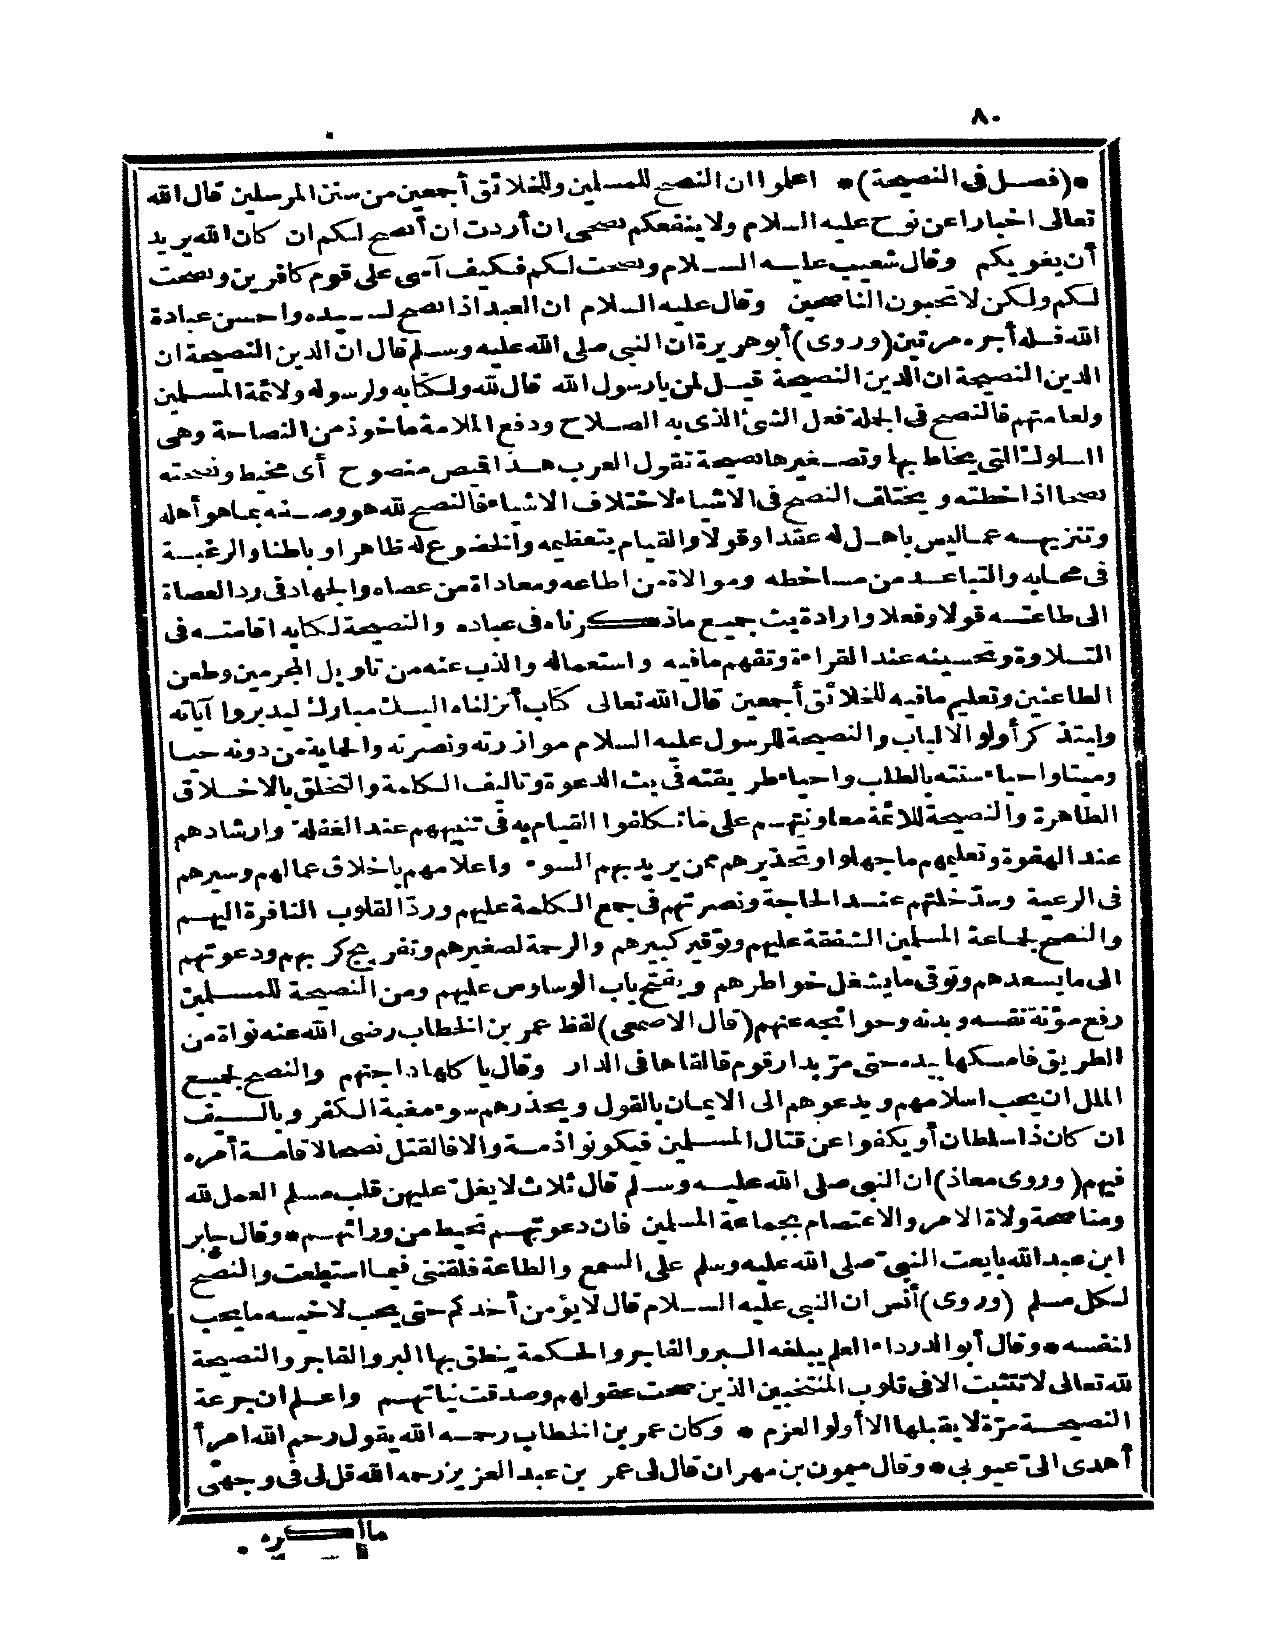 ٨٠
*(فصل فى النصيحة)* اعلموا ان النصح للمسلمين وللخلائق أجمعين من سنن المرسلين قال الله
تعالى اخبارا عن نوح عليه السلام ولا ينفعكم نصحى ان أردت ان أنصح لكم ان كان الله يريد
أن يغويكم وقال شعيب عليه السلام ونصحت لكم فكيف آسى على قوم كافرين ونصحت
لكم ولكن لا تحبون الناصحين وقال عليه السلام ان العبد اذا نصح لسيده واحسن عبادة
الله فله أجره مرتين (وروى) أبو هريرة ان النبى صلى الله عليه وسلم قال ان الدين النصيحة ان
الدين النصيحة ان الدين النصيحة قيل لمن يا رسول الله قال لله ولكتابه ولرسوله ولائمة المسلمين
ولعامتهم فالنصح فى الجملة فعل الشئ الذى به الصلاح ودفع الملامة مأخوذ من النصاحة وهى
السلوك التى يخاط بها وتصغيرها نصيحة تقول العرب هذا قميص منصوح أى مخيط ونصحته
نصحا اذا خطته ويختلف النصح فى الاشياء لاختلاف الاشياء فالنصح لله هو وصفه بما هو أهله
وتنزيهه عما ليس باهل له عقدا وقولا والقيام بتعظيمه والخضوع له ظاهرا وباطنا والرغبة
فى محابه والتباعد من مساخطه وموالاة من اطاعه ومعاداة من عصاه والجهاد فى رد العصاة
الى طاعته قولا وفعلا وارادة بث جميع ما ذكرناه فى عباده والنصيحة لكتابه اقامته فى
التلاوة وتحسينه عند القراءة وتفهم ما فيه واستعماله والذب عنه من تاويل المجرمين وطعن
الطاعنين وتعليم ما فيه للخلائق أجمعين قال الله تعالى كتاب أنزلناه اليك مبارك ليدبروا آياته
وليتذكر أولو الالباب والنصيحة للرسول عليه السلام موازرته ونصرته والحماية من دونه حيا
وميتا واحياء سنته بالطلب واحياء طريقته فى بث الدعوة وتاليف الكلمة والتخلق بالاخلاق
الطاهرة والنصيحة للائمة معاونتهم على ما تكلفوا القيام به فى تنبيههم عند الغفلة وارشادهم
عند الهفوة وتعليمهم ما جهلوا وتحذيرهم ممن يريد بهم السوء واعلامهم باخلاق عمالهم وسيرهم
فى الرعية وسد خلتهم عند الحاجة ونصرتهم فى جمع الكلمة عليهم ورد القلوب النافرة اليهم
والنصح لجماعة المسلمين الشفقة عليهم وتوقير كبيرهم والرحمة لصغيرهم وتفريج كربهم ودعوتهم
الى ما يسعدهم وتوقى ما يشغل خواطرهم ويفتح باب الوساوس عليهم ومن النصيحة للمسلمين
رفع مؤنة نفسه وبدنه وحوائجه عنهم (قال الاصمعى) لقظ عمر بن الخطاب رضى الله عنه نواة من
الطريق فامسكها بيده حتى مر بدار قوم فالقاها فى الدار وقال ياكلها داجنتهم والنصح لجميع
الملل ان يحب اسلامهم ويدعوهم الى الايمان بالقول ويحذرهم سوء مغبة الكفر وبالسيف
ان كان ذا سلطان أو يكفوا عن قتال المسلمين فيكونوا ذمة والا فالقتل نصحا لاقامة أمره
فيهم (وروى معاذ) ان النبى صلى الله عليه وسلم قال ثلاث لا يغل عليهن قلب مسلم العمل لله
ومناصحة ولاة الامر والاعتصام بجماعة المسلمين فان دعوتهم تحيط من ورائهم * وقال جابر
ابن عبد الله بايعت النبى صلى الله عليه وسلم على السمع والطاعة فلقننى فيما استطعت والنصح
لكل مسلم (وروى) أنس ان النبى عليه السلام قال لا يؤمن أحدكم حتى يحب لاخيه ما يحب
لنفسه * وقال أبو الدرداء العلم يبلغه البر والفاجر والحكمة ينطق بها البر والفاجر والنصيحة
لله تعالى لا تثبت الا فى قلوب المنتخبين الذين صحت عقولهم وصدقت نياتهم واعلم ان جرعة
النصيحة مرة لا يقبلها الا أولو العزم * وكان عمر بن الخطاب رحمه الله يقول رحم الله امرأ
أهدى الى عيوبى * وقال ميمون بن مهران قال لى عمر بن عبد العزيز رحمه الله قل لى فى وجهى
ما أكره